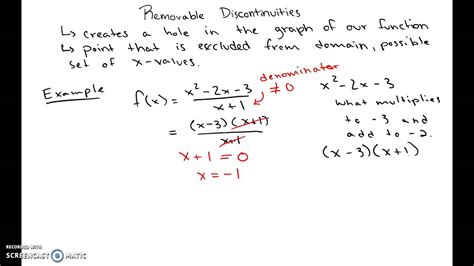 Removable Discontinuities
↳ creates a hole in the graph of our function
↳ point that is excluded from domain, possible
set of x-values.
Example
f(x) = x² - 2x - 3 / x + 1
denominator ≠ 0
= (x-3)(x+1) / x+1
x + 1 = 0
x = -1
x² - 2x - 3
what multiplies
to -3 and
add to -2.
(x - 3)(x + 1)
RECORDED WITH
SCREENCAST MATIC